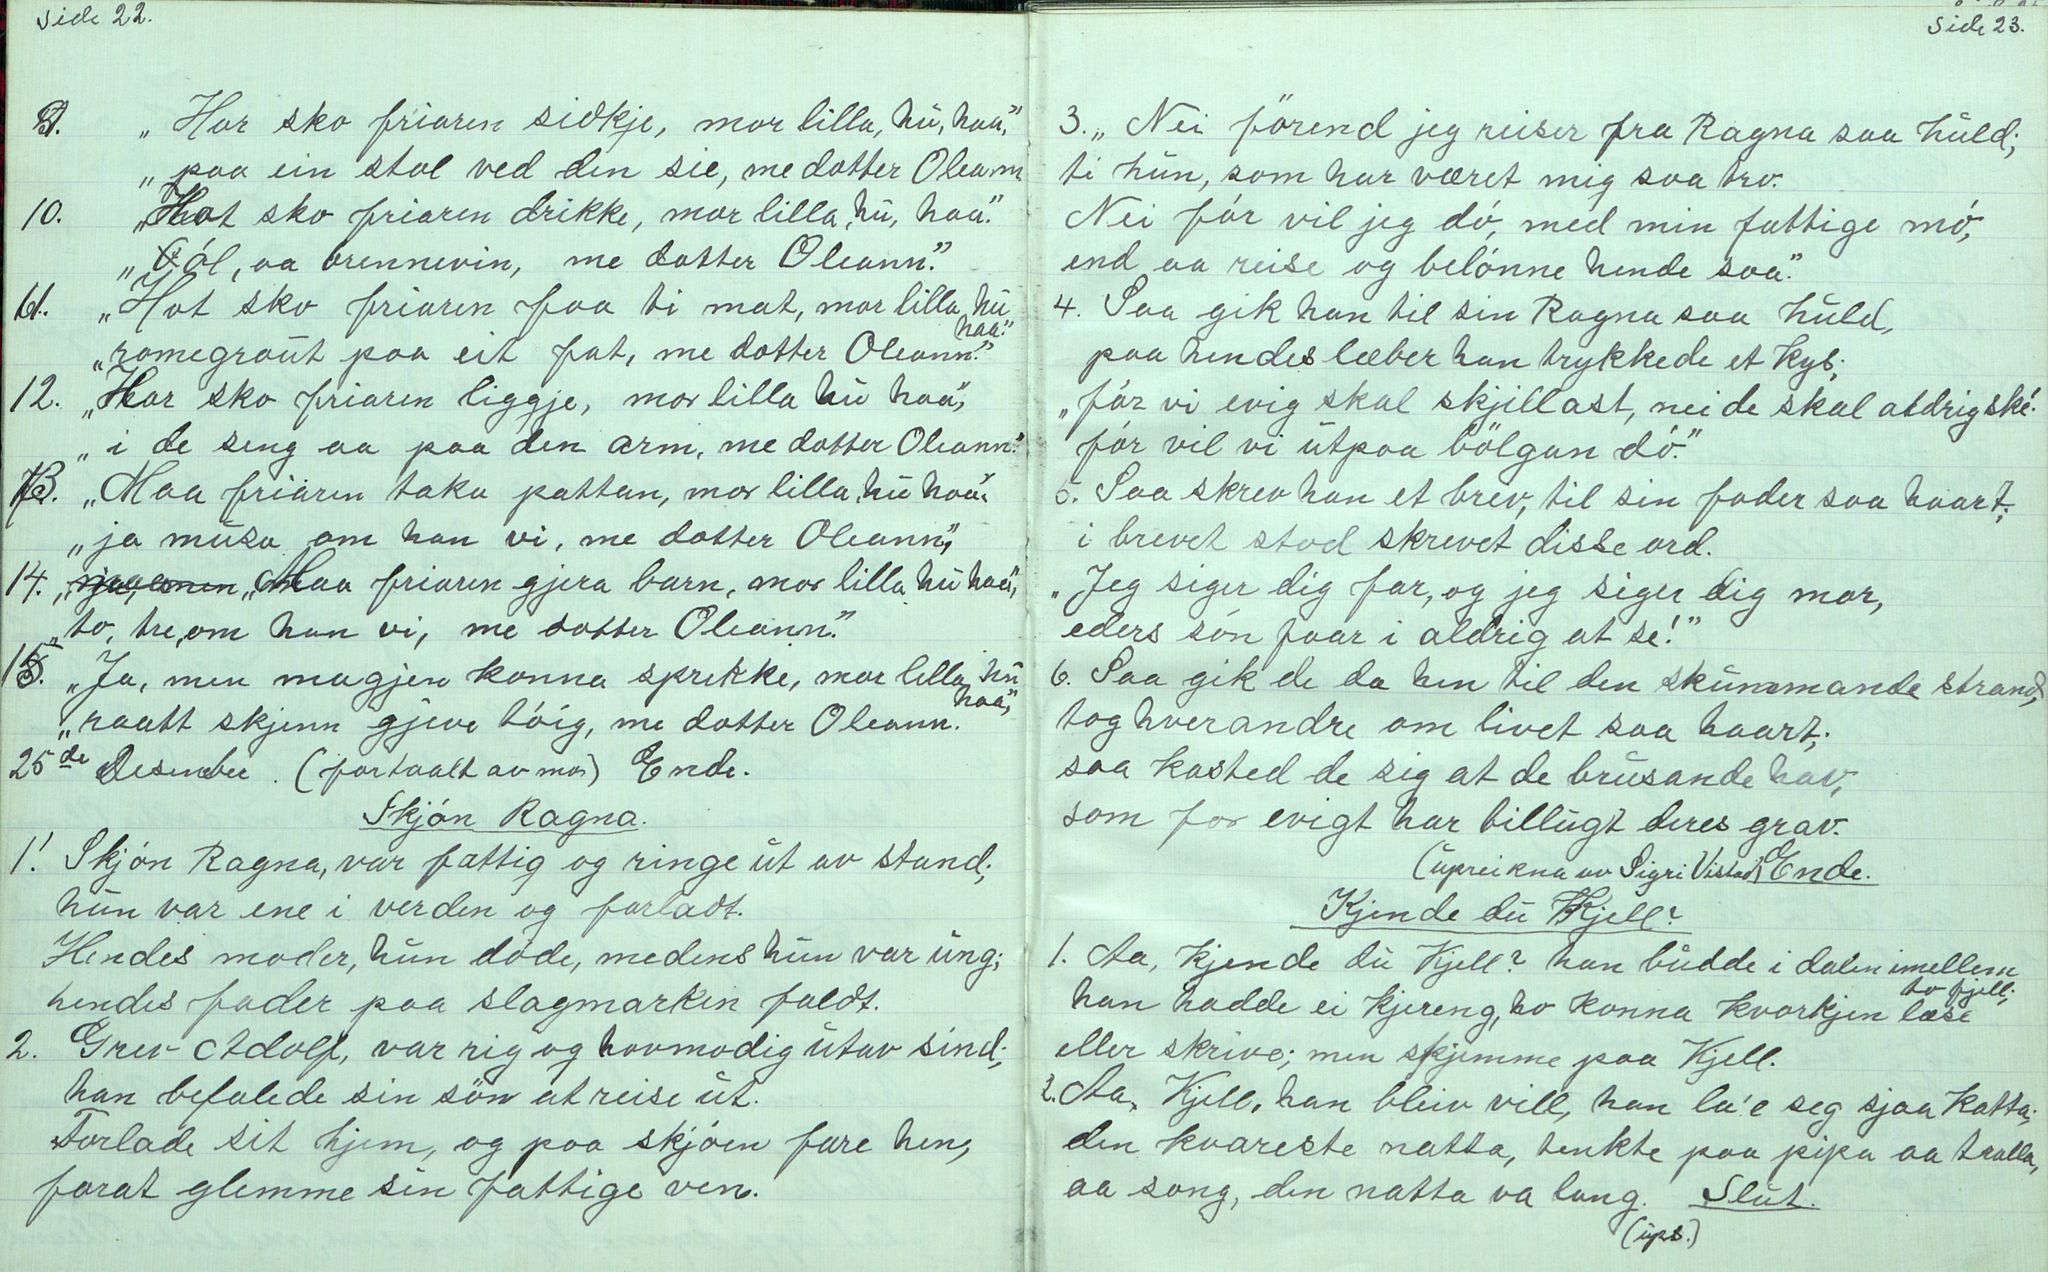 Side 22.
9. „Har sko friaren sidkje, mor lilla, hŭ, haa,"
„paa ein stol ved den sie, me dotter Oleann
10. „Hot sko friaren drikke, mor lilla, hŭ, haa."
„öl, aa brennevin, me dotter Oleann."
11. „Hot sko friaren faa ti mat, mor lilla, hŭ haa."
„romegraŭt paa eit fat, me dotter Oleann."
12. „Har sko friaren liggje, mor lilla hŭ haa",
„i de seng aa paa den arm, me dotter Oleann."
13. „Maa friaren taka pattan, mor lilla, hŭ haa"
„ja mŭsa om han vi, me dotter Oleann",
14. „Maa friaren gjera barn, mor lilla hŭ haa",
„to, tre, om han vi, me dotter Oleann."
15. „Ja, men magjen konna sprekke, mor lilla, hŭ haa",
„raatt skjenn gjeve töig, me dotter Oleann.
25de Desember. (fortaalt av mor) Ende.
Skjön Ragna.
1. Skjön Ragna, var fattig og ringe ŭt av stand;
hŭn var ene i verden og forladt.
Hendes moder, hŭn döde, medens hŭn var ŭng;
hendes fader paa slagmarken faldt.
2. Grev Adolf, var rig og hovmodig ŭtav sind;
han befalede sin sön at reise ŭt.
Forlade sit hjem, og paa skjöen fare hen,
forat glemme sin fattige ven.
Side 23.
3. „Nei förend jeg reiser fra Ragna saa hŭld;
ti hŭn, som har været mig saa tro.
Nei för vil jeg dö, med min fattige mö,
end aa reise og belönne hende saa."
4. Saa gik han til sin Ragna saa hŭld,
paa hendes læber han trykkede et kys;
„för vi evig skal skjillast, nei de skal aldrig ske!
för vil vi ŭtpaa bölgan dö."
5. Saa skrev han et brev, til sin fader saa haart;
i brevet stod skrevet disse ord.
„Jeg siger dig far, og jeg siger dig mor,
eders sön faar i aldrig at se!"
6. Saa gik de da hen til den skŭmmande strand,
tog hverandre om livet saa haart;
saa kasted de sig at de brŭsande hav,
som for evigt har billŭgt deres grav.
(ŭpreikna av Sigri Vistad) Ende.
Kjende dŭ Kjell?
1. Aa, kjende dŭ Kjell? han bŭdde i dalen imellem to fjell;
han hadde ei kjereng, ho konna kvorkjen læse
eller skrive; men skjemme paa Kjell.
2. Aa, Kjell, han bleiv vill, han la'e seg sjaa katta;
den kvareste natta, tenkte paa pipa aa tralla,
aa song, den natta va lang. Slŭt.
(ŭps.)